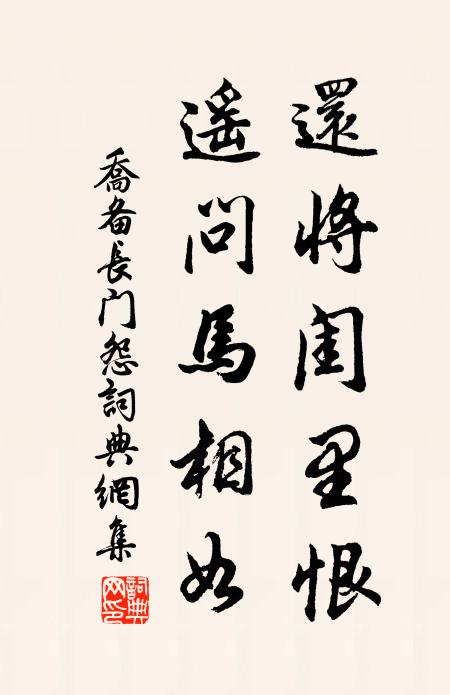 還將閨里恨
遥問馬相如
喬备長門怨詞典網集
詞典网印